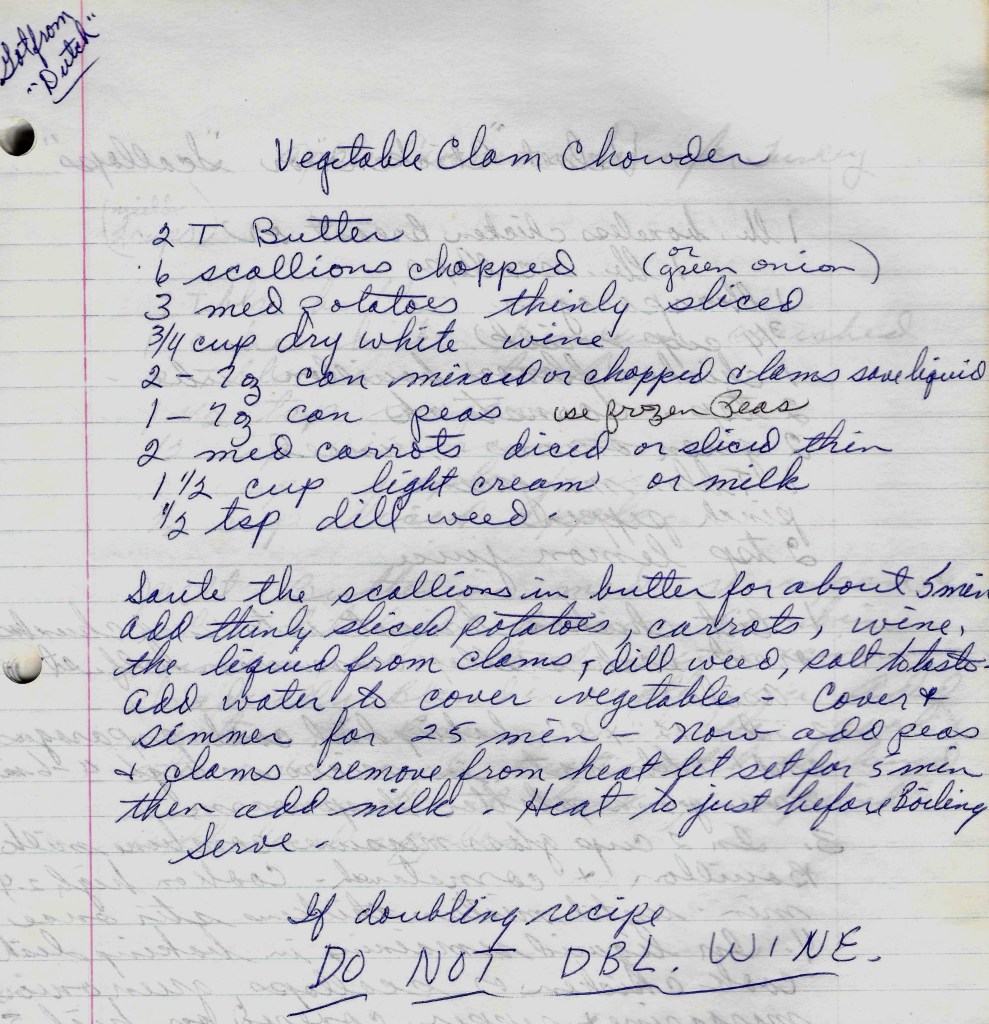 Got from
"Dutch"
Vegetable Clam Chowder
2 T Butter
6 scallions chopped (or green onion)
3 med potatoes thinly sliced
3/4 cup dry white wine
2 - 7oz can minced or chopped clams save liquid
1 - 7oz can peas use frozen Peas
2 med carrots diced or sliced thin
1 1/2 cup light cream or milk
1/2 tsp dill weed.
Saute the scallions in butter for about 5 min
add thinly sliced potatoes, carrots, wine,
the liquid from clams, dill weed, salt to taste
add water to cover vegetables - Cover &
simmer for 25 min - now add peas
& clams remove from heat let set for 5 min
then add milk. Heat to just before Boiling
Serve -
If doubling recipe
DO NOT DBL. WINE.